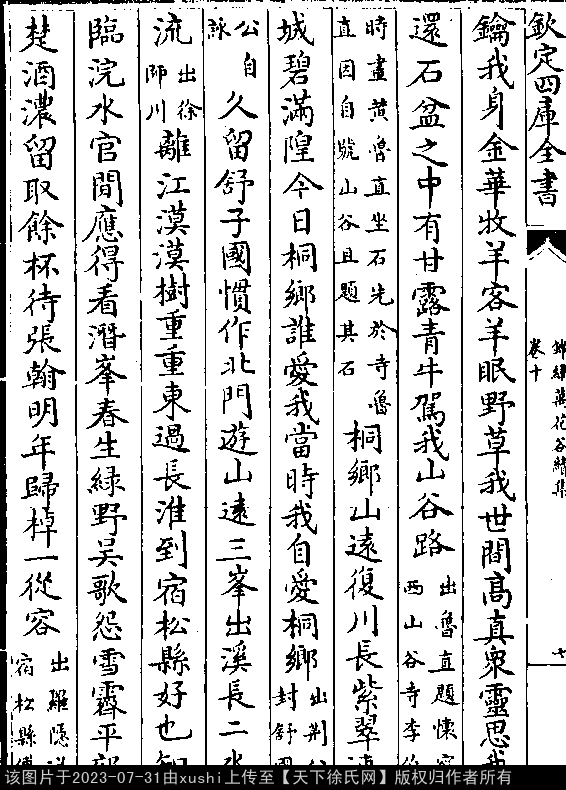 欽定四庫全書
錦繡萬花谷續集
卷十
十
鑰我身金華牧羊客羊眠野草我世間高真衆靈思我
還石盆之中有甘露青牛駕我山谷路
出魯直題懷寧
西山谷寺李伯
時畫黄魯直坐石先於寺魯
直因自號山谷且題其石
桐鄉山遠復川長紫翠連
城碧滿隍今日桐鄉誰愛我當時我自愛桐鄉
出荆公
封舒國
公自
詠
久留舒子國慣作北門遊山遠三峯出溪長二水
流
出徐
師川
離江漠漠樹重重東過長淮到宿松縣好也知
臨浣水官閒應得看潛峯春生緑野吳歌怨雪霽平郊
楚酒濃留取餘杯待張翰明年歸棹一從容
出羅隱送
宿松縣傅
该图片于2023-07-31由xushi上传至【天下徐氏网】版权归作者所有